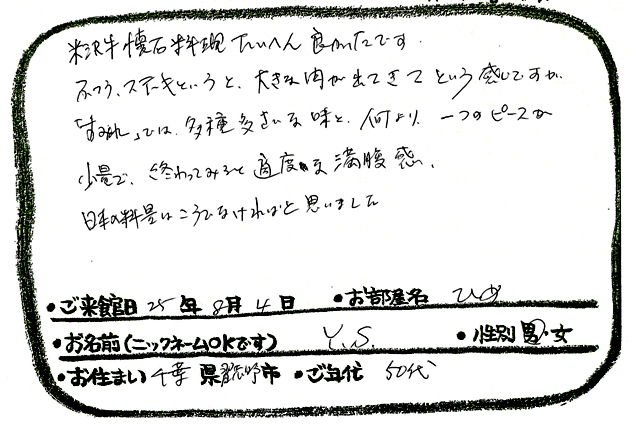 米沢牛懐石料理 たいへん良かったです.
ふつう、ステーキというと、大きな肉が出てきてという感じですが、
「すみれ」では、多種多さいな味と、何より、一つのピースが
少量で、終わってみると適度な満腹感、
日本の料量はこうでなければと思いました
・ご来館日 25年 8月 4日 ・お部屋名 ひめ
・お名前(ニックネームOKです) Y.S. ・性別 男・女
・お住まい 千葉 県 習志野市 ・ご年代 50代